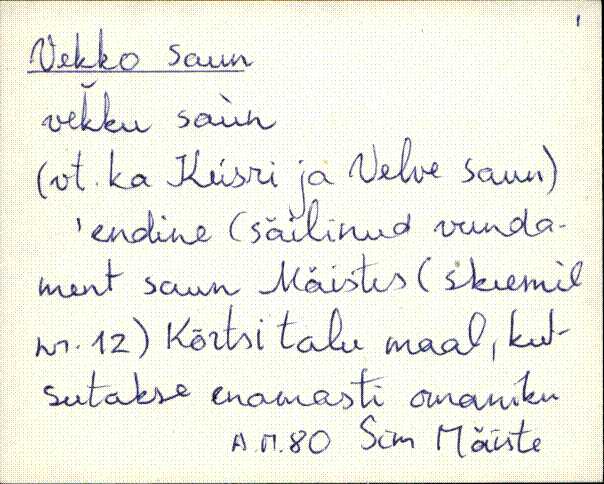 Vekko saun
vek̆ku saùn
(vt. ka Keisri ja Velve saun)
'endine (säilinud vunda-
ment saun Mäistes (skeemil
nr. 12) Kõrtsi talu maal, kut-
sutakse enamasti omaniku
A.M.80 Sim Mäiste